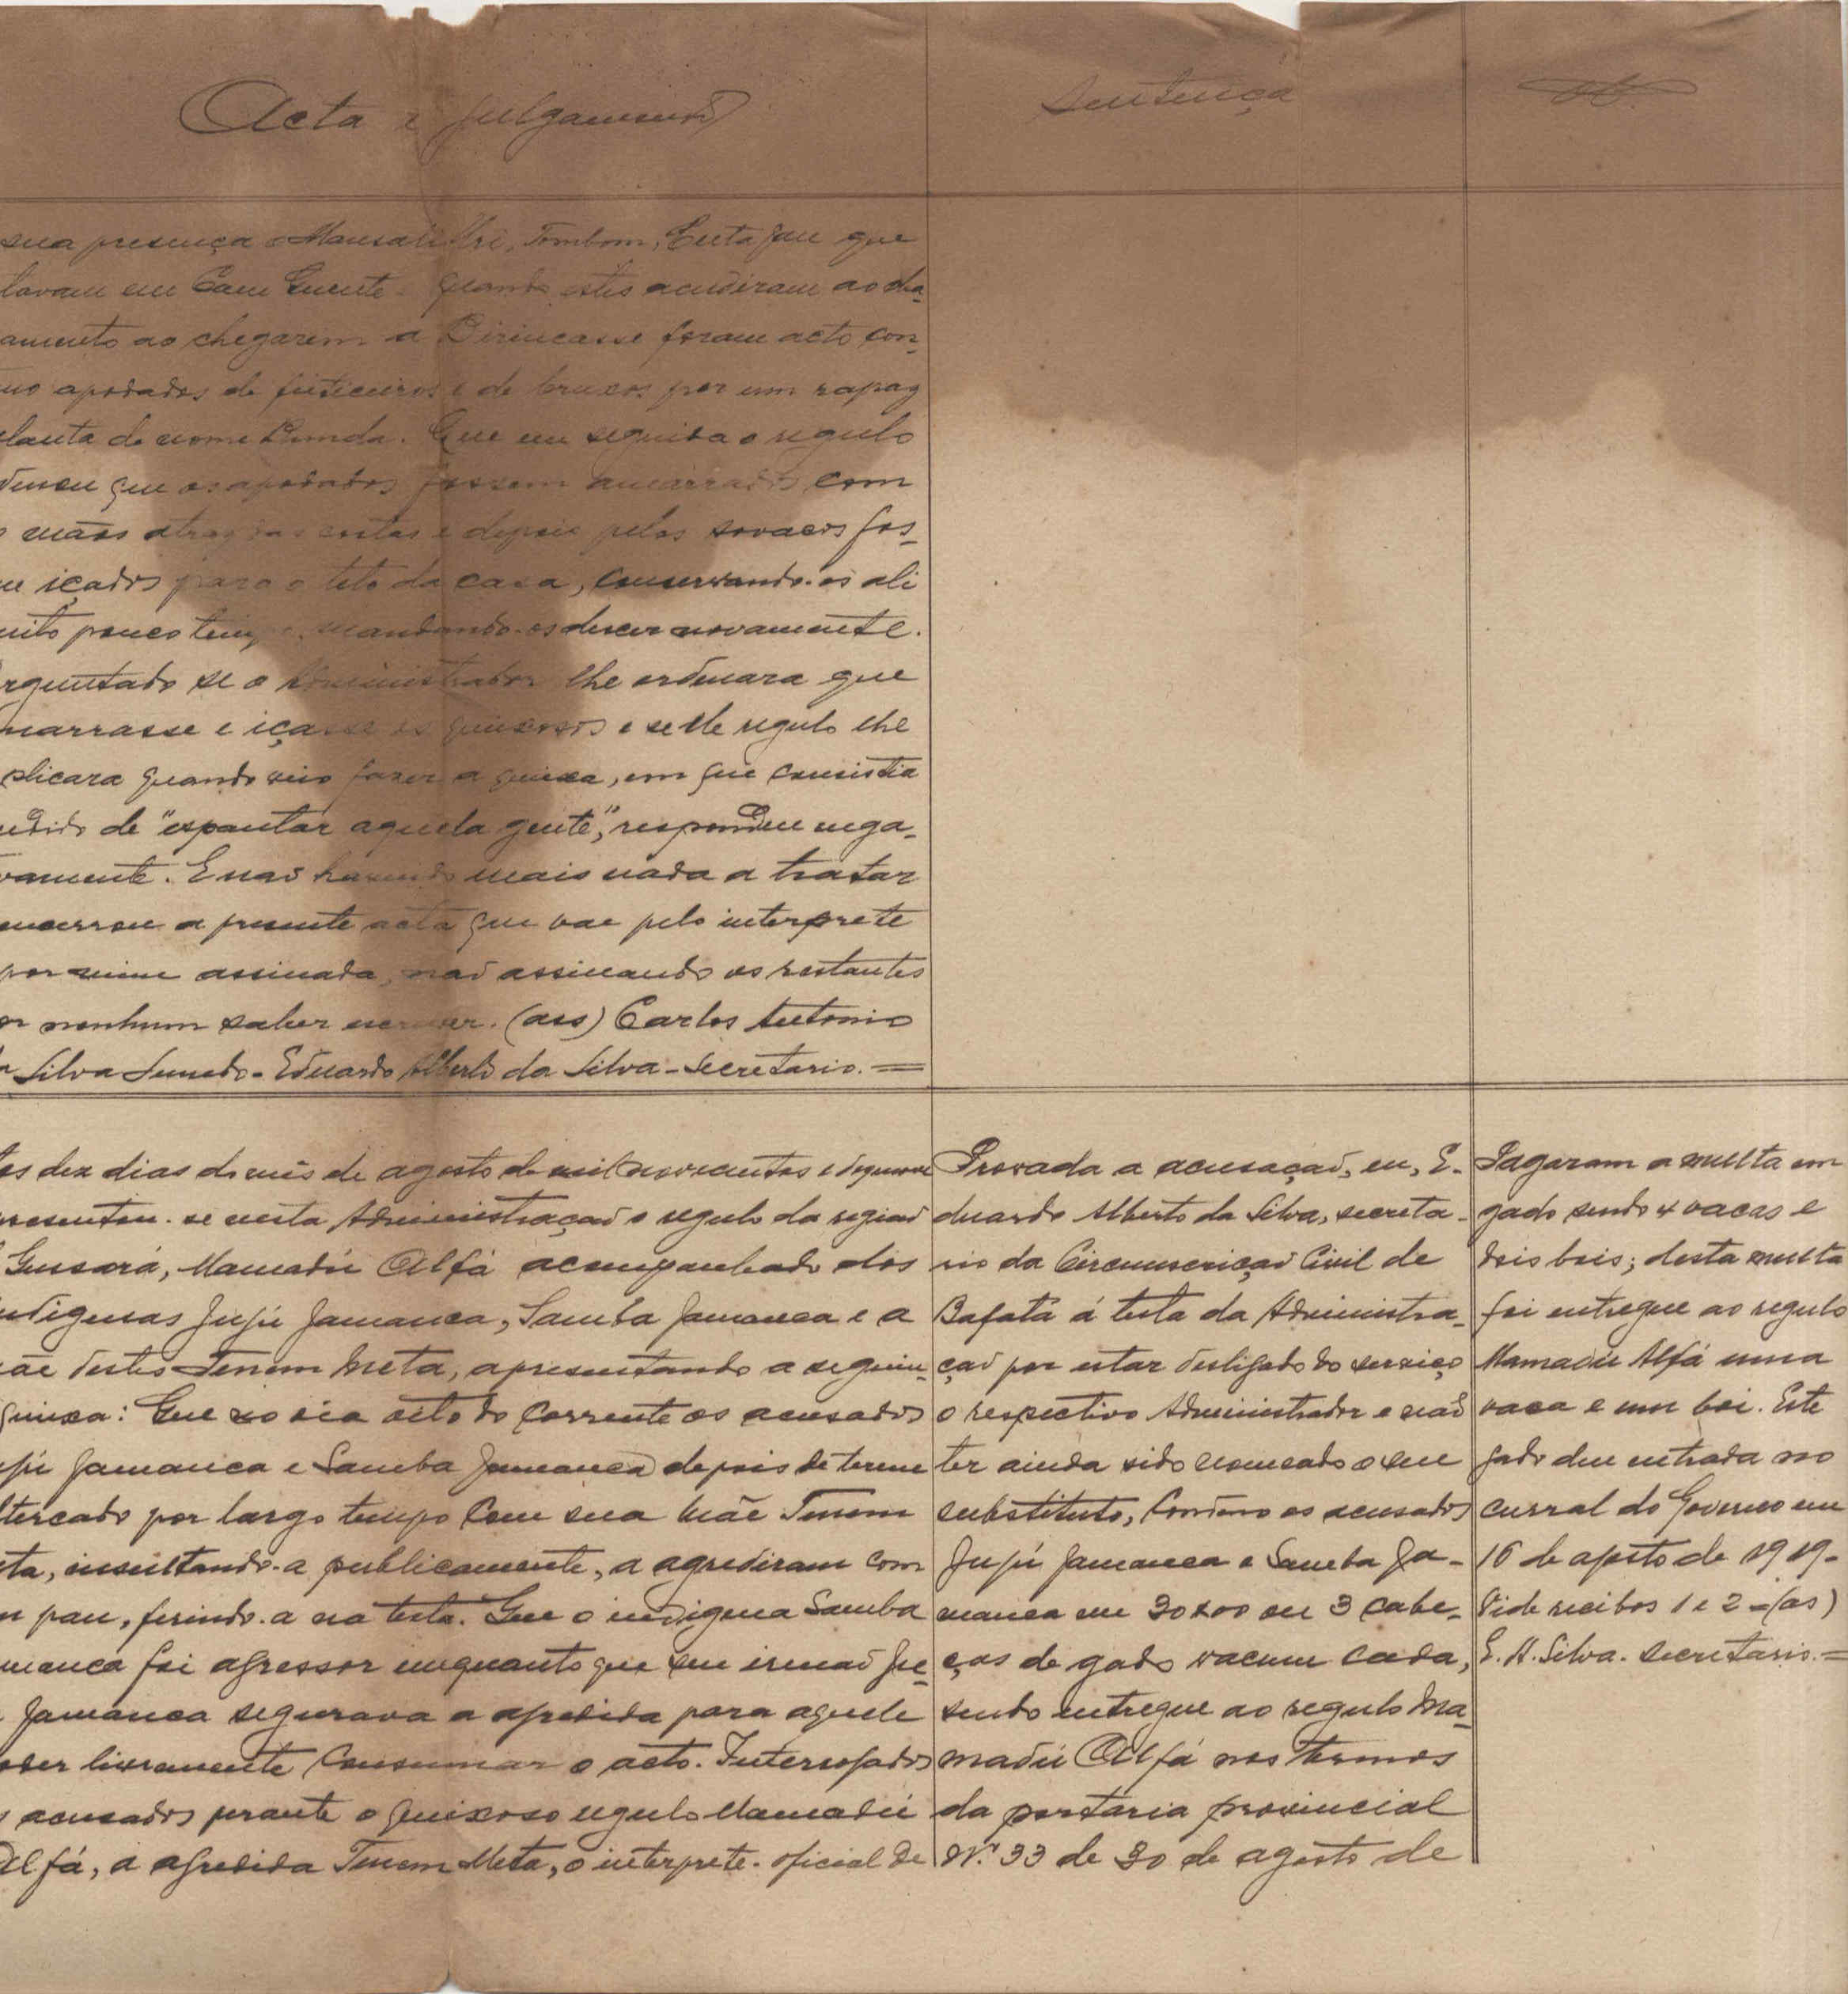 Acta e julgamento
Sentença
sua presença Mansali Tombom, que
tavam em Cam Quente. Quando estes acudiram ao cha-
amento ao chegarem a Dirincasse foram acto con-
nuo apodados de feiticeiros e de bruxos por um rapaz
alanta de nome Bunda. Que em seguida o regulo
denou que os apodados fossem amarrados com
s mãos atraz das costas e depois pelos sovacos fos-
m içados para o teto da casa, conservando-os ali
uito pouco tempo, mandando-os descer novamente.
rguntado se o Administrador lhe ordenara que
marrasse e içasse os queixosos e se ele regulo lhe
plicara quando veio fazer a queixa, em que consistia
edido de "espantar aquela gente", respondeu nega-
vamente. E não havendo mais nada a tratar
encerrou a presente acta que vae pelo interprete
por mim assinada, não assinando os restantes
or nenhum saber escrever. (ass) Carlos Antonio
a Silva - Eduardo Alberto da Silva - Secretario. =
os dez dias do mês de agosto de mil novecentos e dezenove
presentou-se nesta Administração o regulo da região
Gussará, Mamadú Alfá acompanhado dos
ndigenas Jujú Jamanca, Samba Jamanca e a
ãe destes Tenem Meta, apresentando a seguin-
queixa: Que no dia oito do corrente os acusados
ujú Jamanca e Samba Jamanca depois de terem
ltercado por largo tempo com sua mãe Tenem
eta, insultando-a publicamente, a agrediram com
m pau, ferindo-a na testa. Que o indigena Samba
manca foi agressor emquanto que seu irmão Ju-
ú Jamanca segurava a agredida para aquele
oder livremente consumar o acto. Interrogados
s acusados perante o queixoso regulo Mamadú
Alfá, a agredida Tenem Meta, o interprete-oficial de
Provada a acusação, eu, E-
duardo Alberto da Silva, secreta-
rio da Circumscrição Civil de
Bafatá á testa da Administra-
ção por estar desligado do serviço
o respectivo Administrador e não
ter ainda sido nomeado o seu
substituto, condeno os acusados
Jujú Jamanca e Samba Ja-
manca em 30$00 ou 3 cabe-
ças de gado vacum cada,
sendo entregue ao regulo Ma-
madú Alfá nos termos
da portaria provincial
Nº 33 de 30 de agosto de
Pagaram a multa em
gado sendo 4 vacas e
dois bois; desta multa
foi entregue ao regulo
Mamadú Alfá uma
vaca e um boi. Este
gado deu entrada no
curral do Governo em
16 de agosto de 1919-
Vide recibos 1 e 2 = (as)
E. A. Silva. Secretario. =